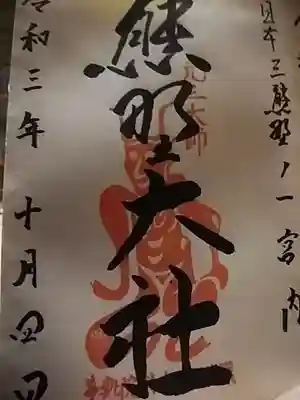 日本三熊野ノ一宮内
熊野大社
元三大師
令和三年十月四日